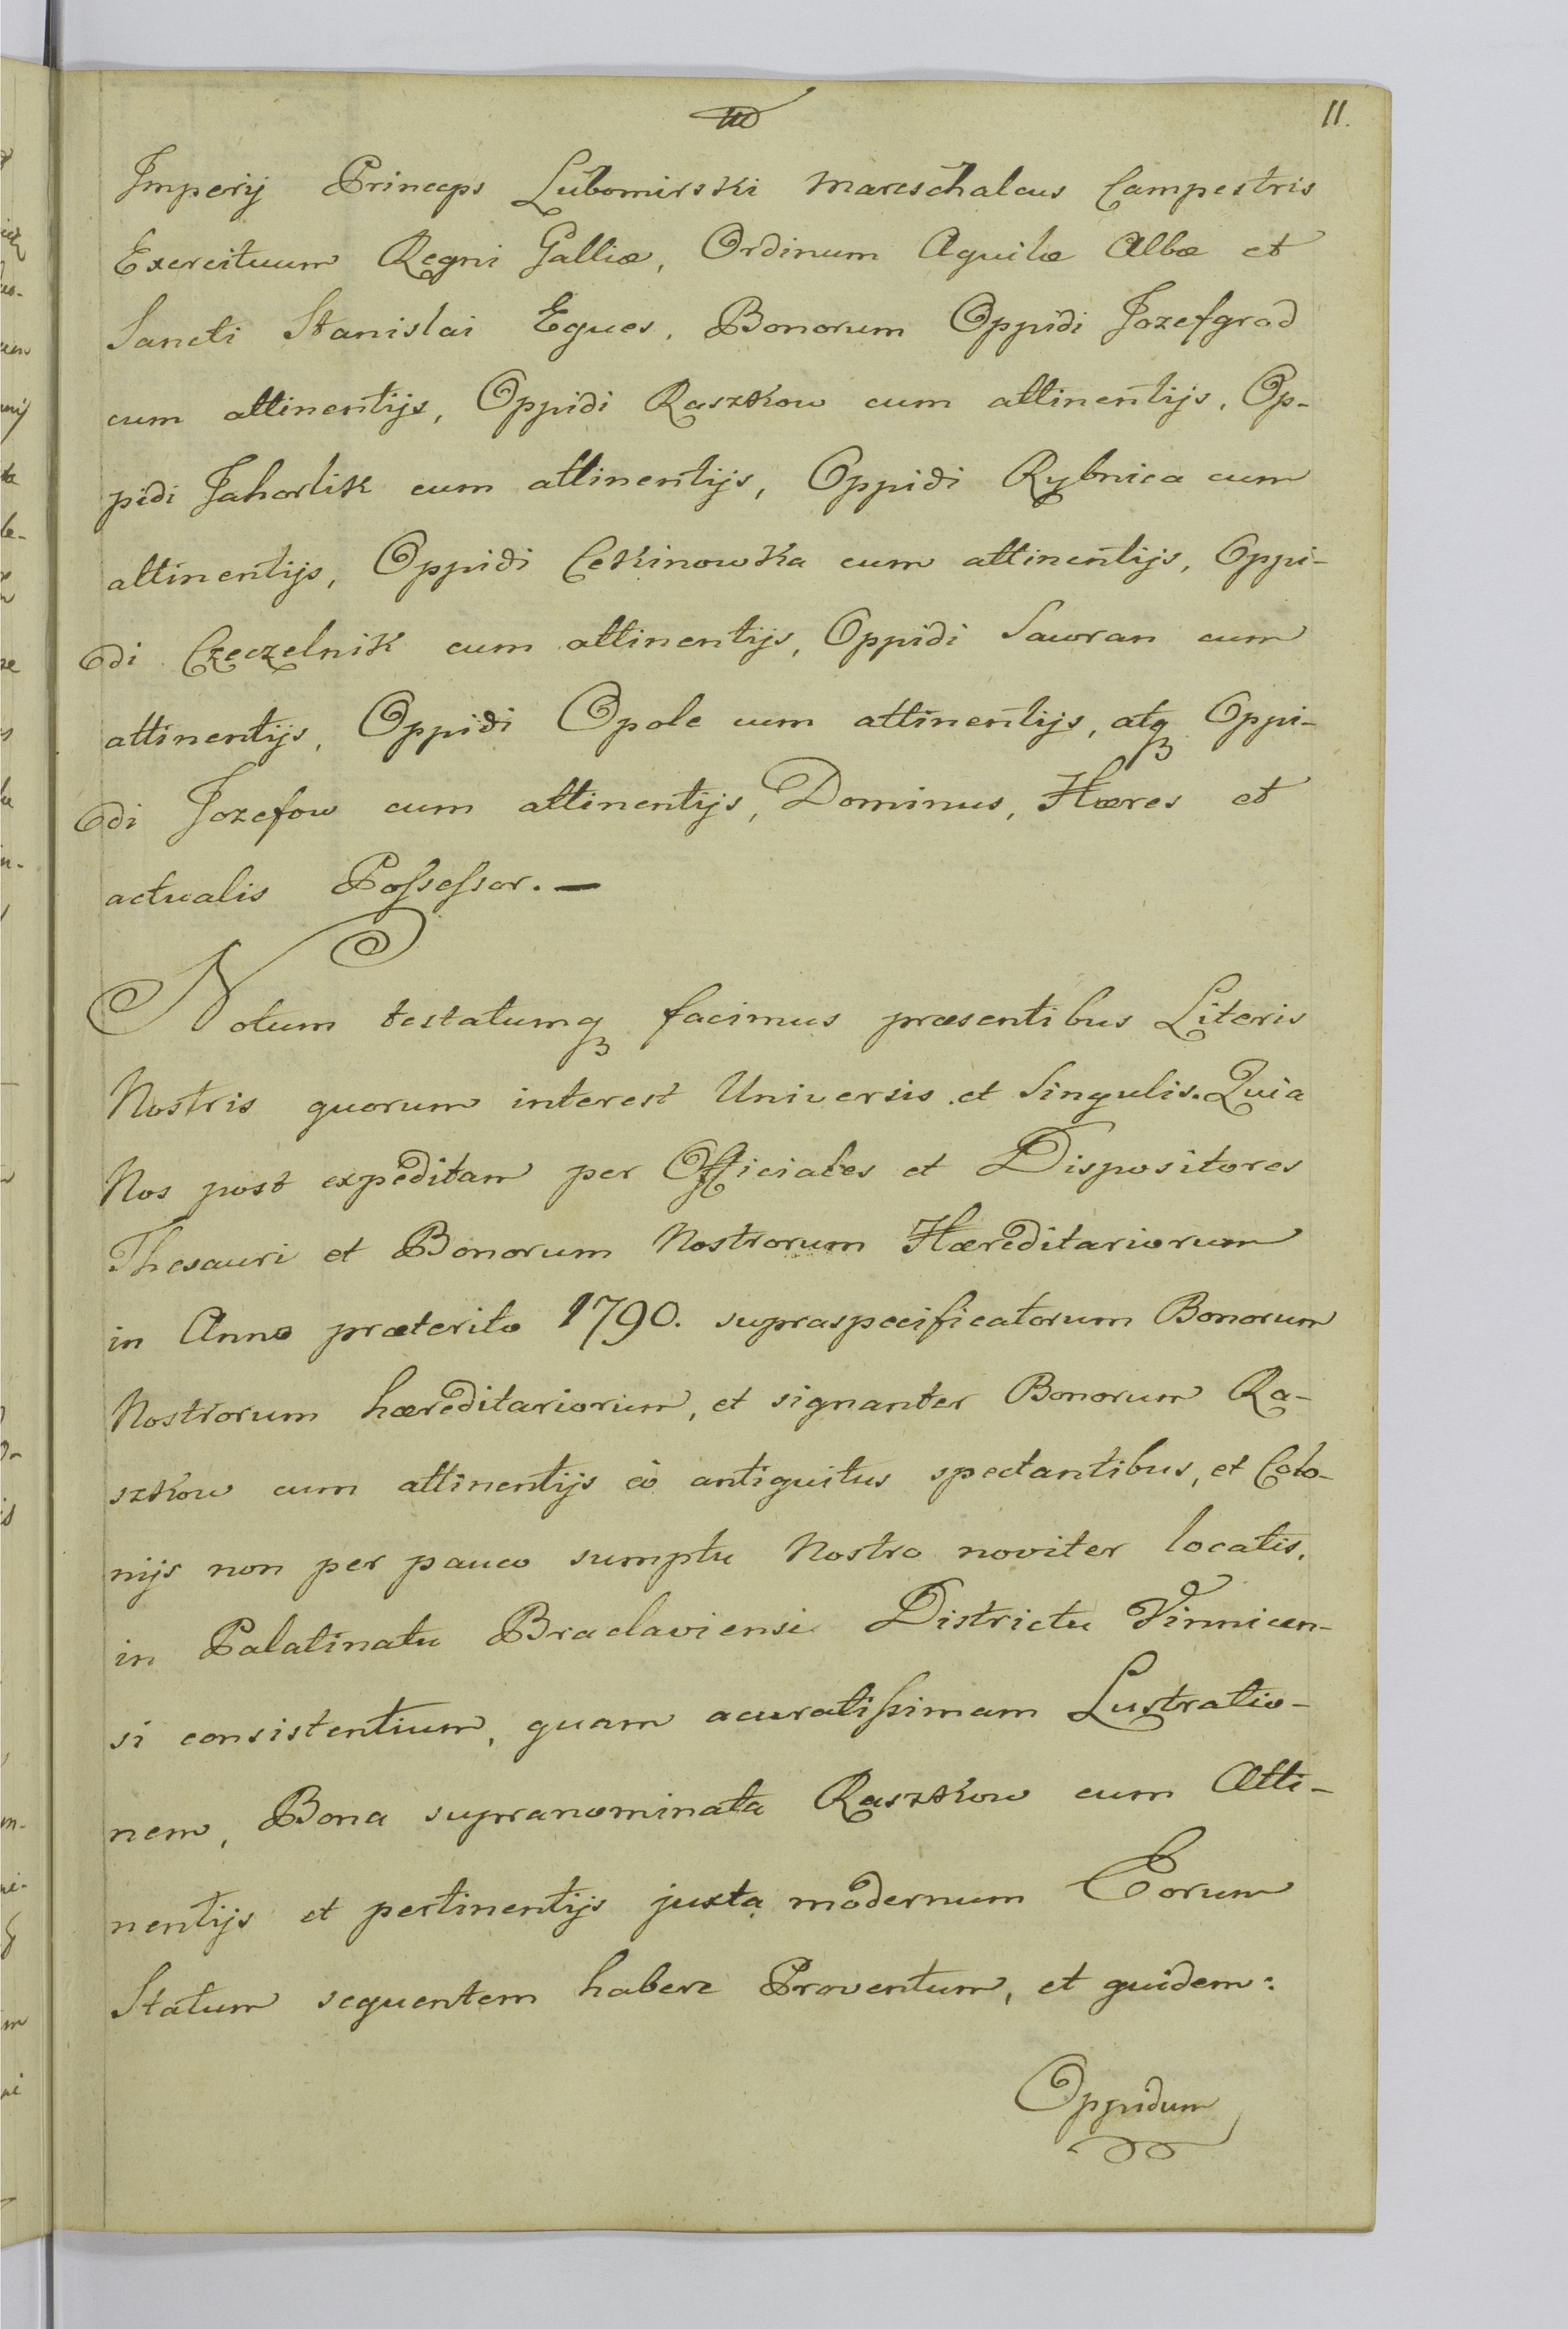 11.
Imperij Princeps Lubomirski Mareschalcus Campestris
Exercituum Regni Galliæ, Ordinum Aquilæ Albæ et
Sancti Stanislai Eques, Bonorum Oppidi Jozefgrad
cum attinentijs, Oppidi Raszkow cum attinentijs, Op-
pidi Jahorlik cum attinentijs, Oppidi Rybnica cum
attinentijs, Oppidi Cekinowka cum attinentijs, Oppi-
di Czeczelnik cum attinentijs, Oppidi Sawran cum
attinentijs, Oppidi Opole cum attinentijs, atq₃ Oppi-
di Jozefow cum attinentijs, Dominus, Hæres et
actualis Poſseſsor. —
Notum testatumq₃ facimus præsentibus Literis
Nostris quorum interest Universis et Singulis. Quia
Nos post expeditam per Officiales et Dispositores
Thesauri et Bonorum Nostrorum Hæreditariorum
in Anno præterito 1790. supraspecificatorum Bonorum
Nostrorum hæreditariorum, et signanter Bonorum Ra-
szkow cum attinentijs eò antiquitus spectantibus, et Colo-
nijs non per pauco sumptu Nostro noviter locatis,
in Palatinatu Braclaviensi Districtu Vinnicen-
si consistentium, quam acuratiſsimam Lustratio-
nem, Bona supranominata Raszkow cum Atti-
nentijs et pertinentijs juxta modernum Eorum
Statum sequentem habere Proventum, et quidem:
Oppidum